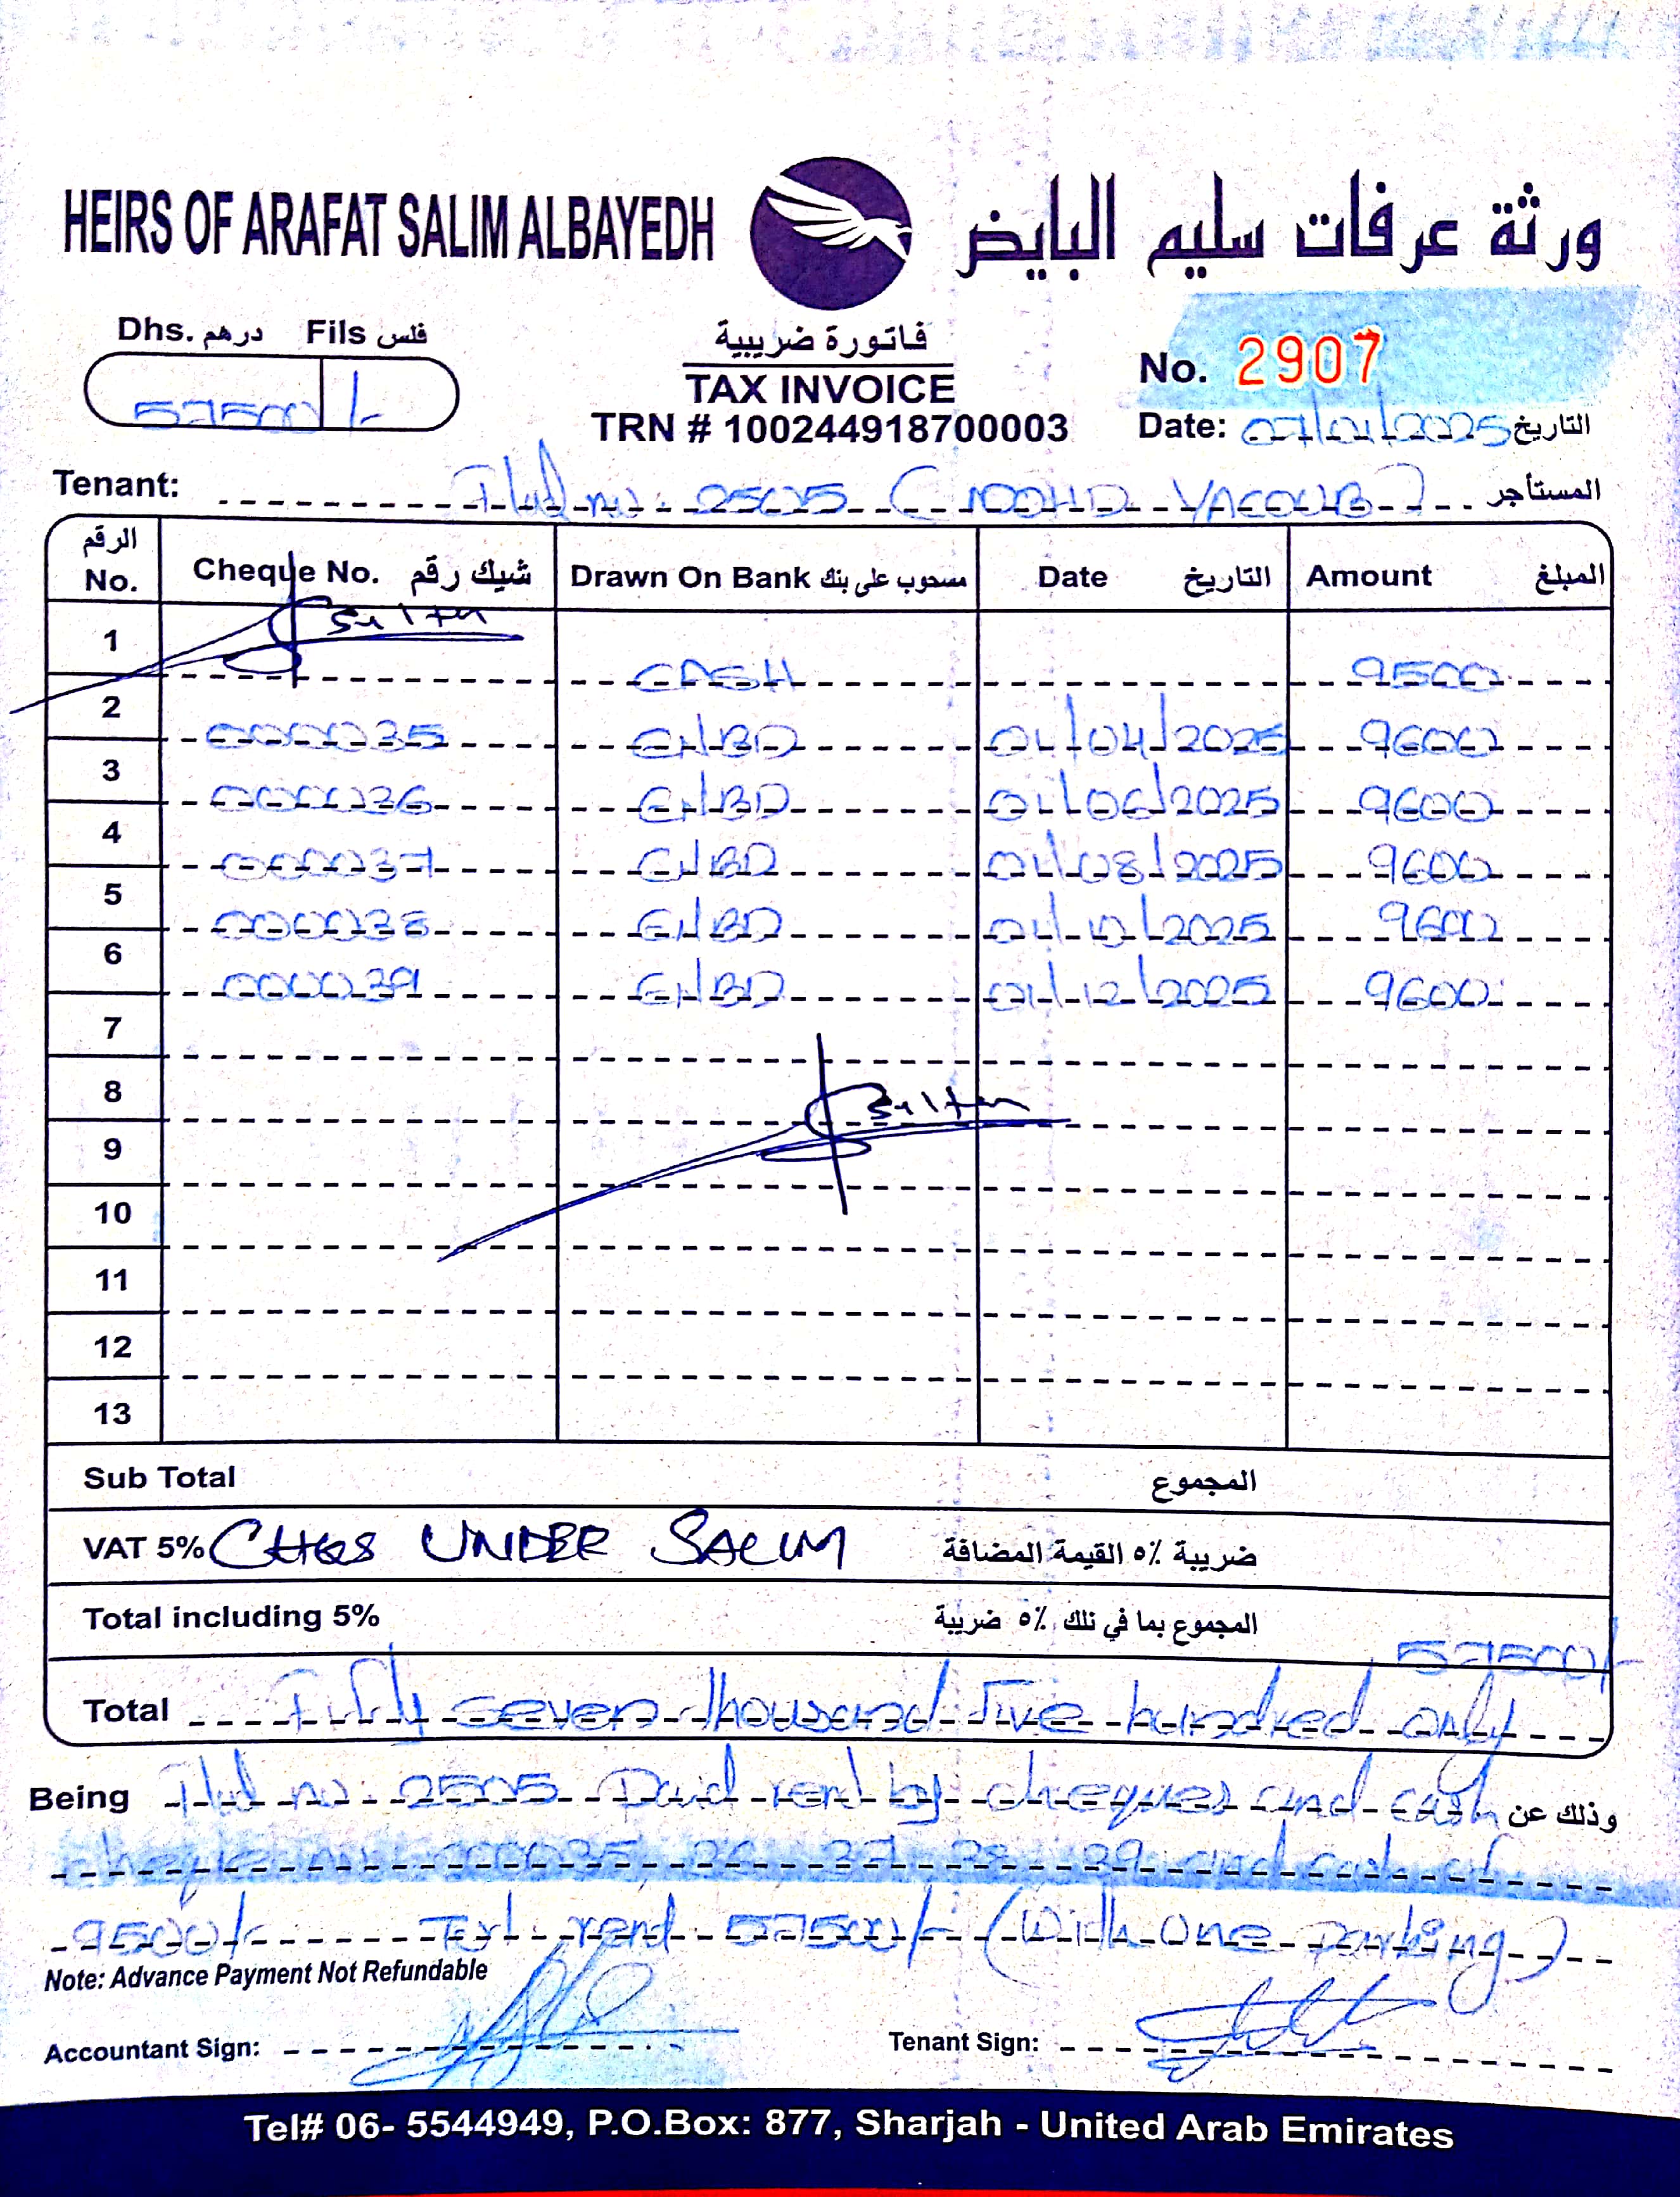 HEIRS OF ARAFAT SALIM ALBAYEDH
ورثة عرفات سليم البايض
Dhs. درهم Fils فلس
57500 /-
فاتورة ضريبية
TAX INVOICE
TRN # 100244918700003
No. 2907
Date: 07/01/2025 التاريخ
Tenant: Flat no. 2505 (MOHD YACOUB) المستأجر
الرقم No. Cheque No. شيك رقم Drawn On Bank مسحوب على بنك Date التاريخ Amount المبلغ
Sultan
1 CASH 9500
2 000035 ENBD 01/04/2025 9600
3 000036 ENBD 01/06/2025 9600
4 000037 ENBD 01/08/2025 9600
5 000038 ENBD 01/10/2025 9600
6 000039 ENBD 01/12/2025 9600
7
8
Sultan
9
10
11
12
13
Sub Total المجموع
VAT 5% CHQS UNDER SALIM ضريبة ٥٪ القيمة المضافة
Total including 5% المجموع بما في تلك ٥٪ ضريبة 57500/-
Total Fifty seven thousand five hundred only
Being Flat no. 2505 Paid rent by cheques and cash وذلك عن
cheque no. 000035, 36, 37, 38, 39 and cash of
9500/- rent 57500/- (With One parking)
Note: Advance Payment Not Refundable
Accountant Sign:
Tenant Sign:
Tel# 06- 5544949, P.O.Box: 877, Sharjah - United Arab Emirates